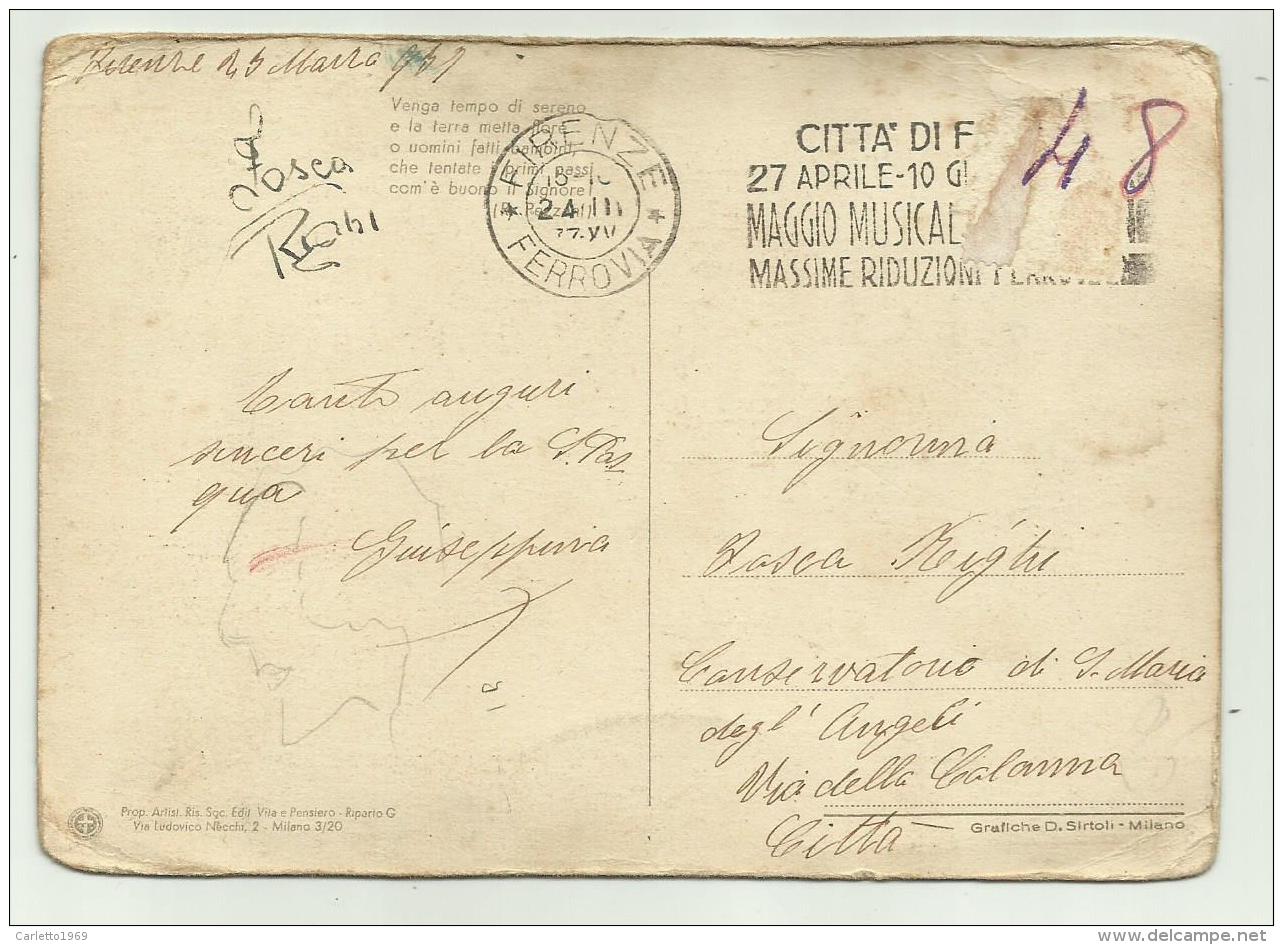 Firenze 23 Marzo 937
Venga tempo di sereno
e la terra metta fiore
o uomini fatti bambini,
che tentate i primi passi
com'è buono il Signore
Tosca
Righi
FIRENZE
24 III
FERROVIA
CITTA' DI F
27 APRILE-10 GI
MAGGIO MUSICAL
MASSIME RIDUZIONI FERROVI
48
Tanti auguri
sinceri per la S. Pas
qua
Giuseppina
Signorina
Tosca Righi
Conservatorio di S. Maria
degl' Angeli
Via della Colonna
Città
Prop. Artist. Ris. Soc. Edit. Vita e Pensiero - Riparto G
Via Ludovico Necchi, 2 - Milano 3/20
Grafiche D. Sirtoli - Milano
Carletto1969